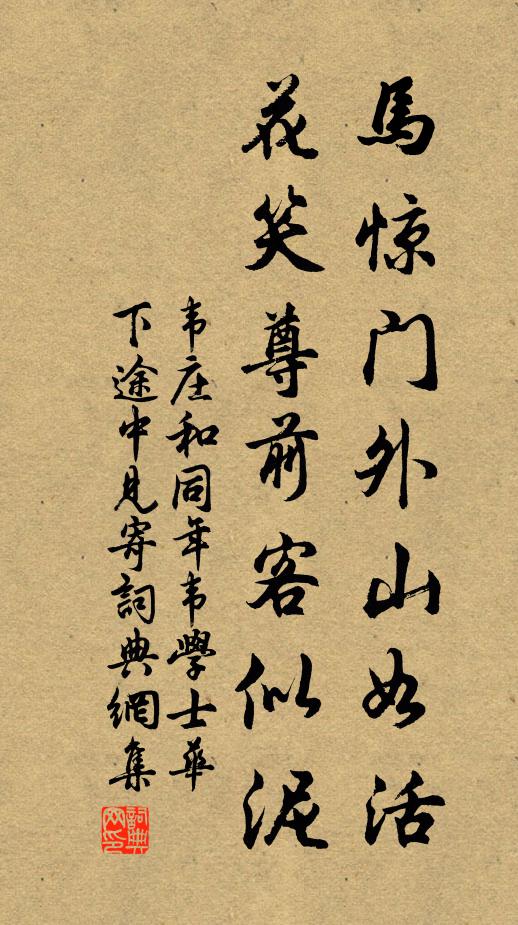 馬惊门外山如活
花笑尊前客似泥
韦庄和同年韦學士華
下途中見寄詞典網集
詞典网印